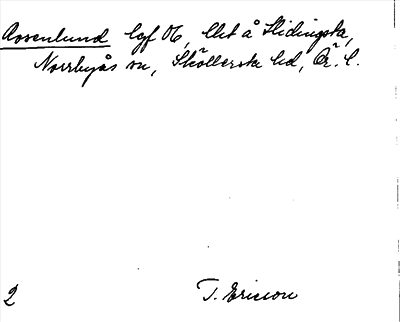 Rosenlund lgf 06, lht å Slidingsta,
Norrbyås sn, Sköllersta hd, Ör. l.
2 T. Ericson